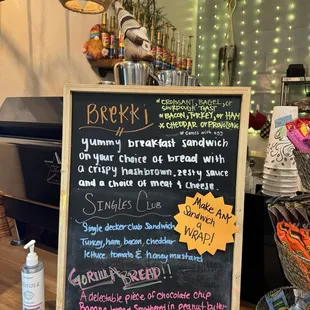 BREKKI
* CROISSANT, BAGEL, OR
* BACON, TURKEY, OR HAM
* CHEDDAR OR PROVOLONE
* comes with egg
yummy breakfast sandwich
on your choice of bread with
a crispy hashbrown, zesty sauce
and a choice of meat & cheese.
SINGLES CLUB
Single decker club Sandwich
Turkey, ham, bacon, cheddar
lettuce, tomato & honey mustard
Make ANY
Sandwich a
WRAP!
GORILLA BREAD!!
A delectable piece of chocolate chip
Banana bread
in peanut-butter